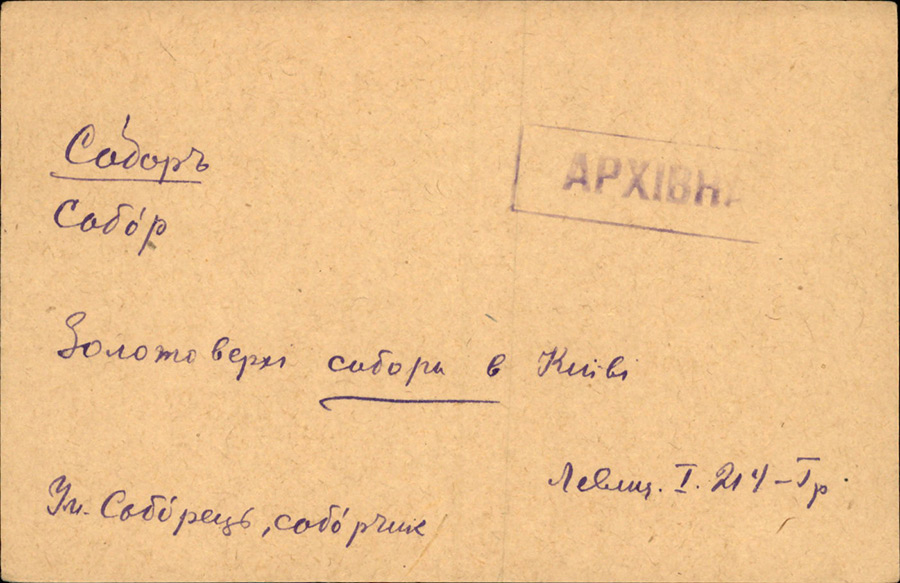 Собо́ръ
АРХІВНА
Собо́р
Золотоверхі собори в Київі
Левиц. I. 214 – Гр.
Ум. Собо́рець, собо́рчик